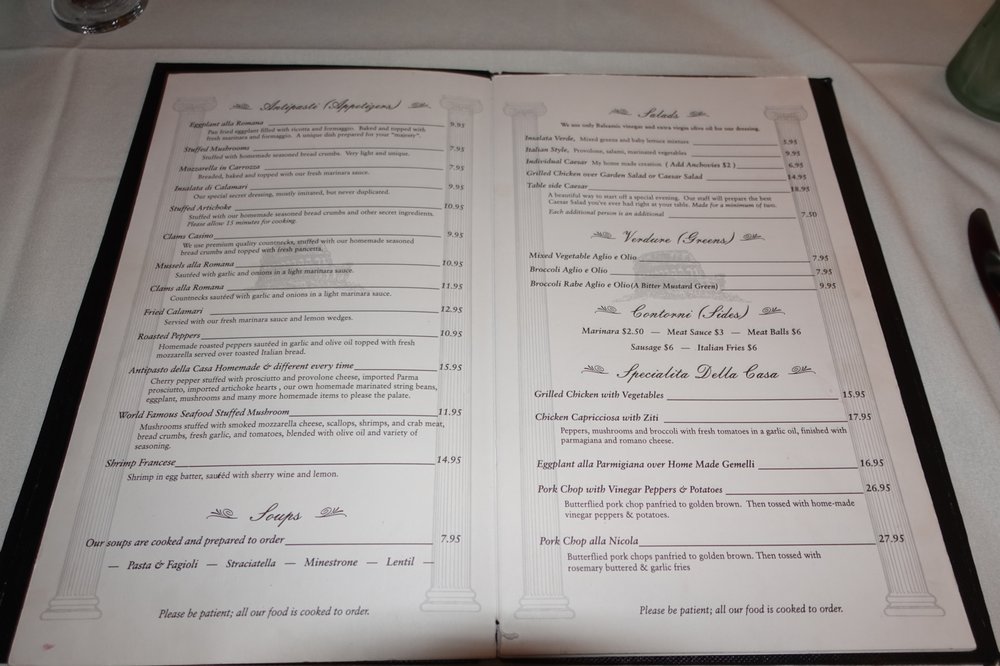 Antipasti (Appetizers)
Eggplant alla Romana 9.95
Pan fried eggplant filled with ricotta and formaggio. Baked and topped with
fresh marinara and formaggio. A unique dish prepared for your "majesty".
Stuffed Mushrooms 7.95
Stuffed with homemade seasoned bread crumbs. Very light and unique.
Mozzarella in Carrozza 7.95
Breaded, baked and topped with our fresh marinara sauce.
Insalata di Calamari 9.95
Our special secret dressing, mostly imitated, but never duplicated.
Stuffed Artichoke 10.95
Stuffed with our homemade seasoned bread crumbs and other secret ingredients.
Please allow 15 minutes for cooking.
Clams Casino 9.95
We use premium quality countnecks, stuffed with our homemade seasoned
bread crumbs and topped with fresh pancetta.
Mussels alla Romana 10.95
Sautéed with garlic and onions in a light marinara sauce.
Clams alla Romana 11.95
Countnecks sautéed with garlic and onions in a light marinara sauce.
Fried Calamari 12.95
Served with our fresh marinara sauce and lemon wedges.
Roasted Peppers 10.95
Homemade roasted peppers sautéed in garlic and olive oil topped with fresh
mozzarella served over toasted Italian bread.
Antipasto della Casa Homemade & different every time 15.95
Cherry pepper stuffed with prosciutto and provolone cheese, imported Parma
prosciutto, imported artichoke hearts , our own homemade marinated string beans,
eggplant, mushrooms and many more homemade items to please the palate.
World Famous Seafood Stuffed Mushroom 11.95
Mushrooms stuffed with smoked mozzarella cheese, scallops, shrimps, and crab meat,
bread crumbs, fresh garlic, and tomatoes, blended with olive oil and variety of
seasoning.
Shrimp Francese 14.95
Shrimp in egg batter, sautéed with sherry wine and lemon.
Soups
Our soups are cooked and prepared to order 7.95
— Pasta & Fagioli — Straciatella — Minestrone — Lentil —
Please be patient; all our food is cooked to order.
Salads
We use only Balsamic vinegar and extra virgin olive oil for our dressing.
Insalata Verde, Mixed greens and baby lettuce mixture 5.95
Italian Style, Provolone, salami, marinated vegetables 9.95
Individual Caesar My home made creation. ( Add Anchovies $2 ) 6.95
Grilled Chicken over Garden Salad or Caesar Salad 14.95
Table side Caesar 18.95
A beautiful way to start off a special evening. Our staff will prepare the best
Caesar Salad you've ever had right at your table. Made for a minimum of two.
Each additional person is an additional 7.50
Verdure (Greens)
Mixed Vegetable Aglio e Olio 7.95
Broccoli Aglio e Olio 7.95
Broccoli Rabe Aglio e Olio(A Bitter Mustard Green) 9.95
Contorni (Sides)
Marinara $2.50 — Meat Sauce $3 — Meat Balls $6
Sausage $6 — Italian Fries $6
Specialita Della Casa
Grilled Chicken with Vegetables 15.95
Chicken Capricciosa with Ziti 17.95
Peppers, mushrooms and broccoli with fresh tomatoes in a garlic oil, finished with
parmagiana and romano cheese.
Eggplant alla Parmigiana over Home Made Gemelli 16.95
Pork Chop with Vinegar Peppers & Potatoes 26.95
Butterflied pork chop panfried to golden brown. Then tossed with home-made
vinegar peppers & potatoes.
Pork Chop alla Nicola 27.95
Butterflied pork chops panfried to golden brown. Then tossed with
rosemary buttered & garlic fries
Please be patient; all our food is cooked to order.